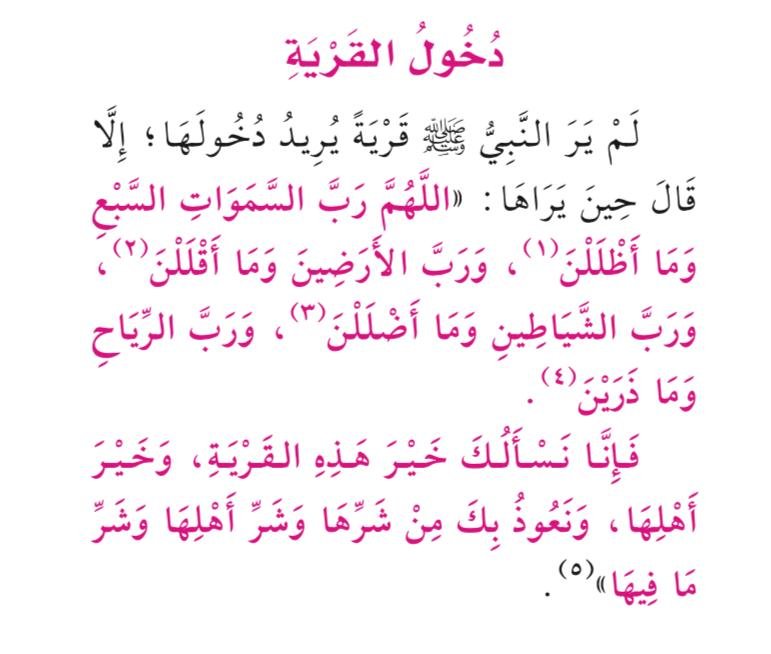 دُخُولُ القَرْيَةِ
لَمْ يَرَ النَّبِيُّ ﷺ قَرْيَةً يُرِيدُ دُخُولَهَا؛ إِلَّا
قَالَ حِينَ يَرَاهَا: «اللَّهُمَّ رَبَّ السَّمَوَاتِ السَّبْعِ
وَمَا أَظْلَلْنَ(١)، وَرَبَّ الأَرَضِينَ وَمَا أَقْلَلْنَ(٢)،
وَرَبَّ الشَّيَاطِينِ وَمَا أَضْلَلْنَ(٣)، وَرَبَّ الرِّيَاحِ
وَمَا ذَرَيْنَ(٤).
فَإِنَّا نَسْأَلُكَ خَيْرَ هَذِهِ القَرْيَةِ، وَخَيْرَ
أَهْلِهَا، وَنَعُوذُ بِكَ مِنْ شَرِّهَا وَشَرِّ أَهْلِهَا وَشَرِّ
مَا فِيهَا»(٥).